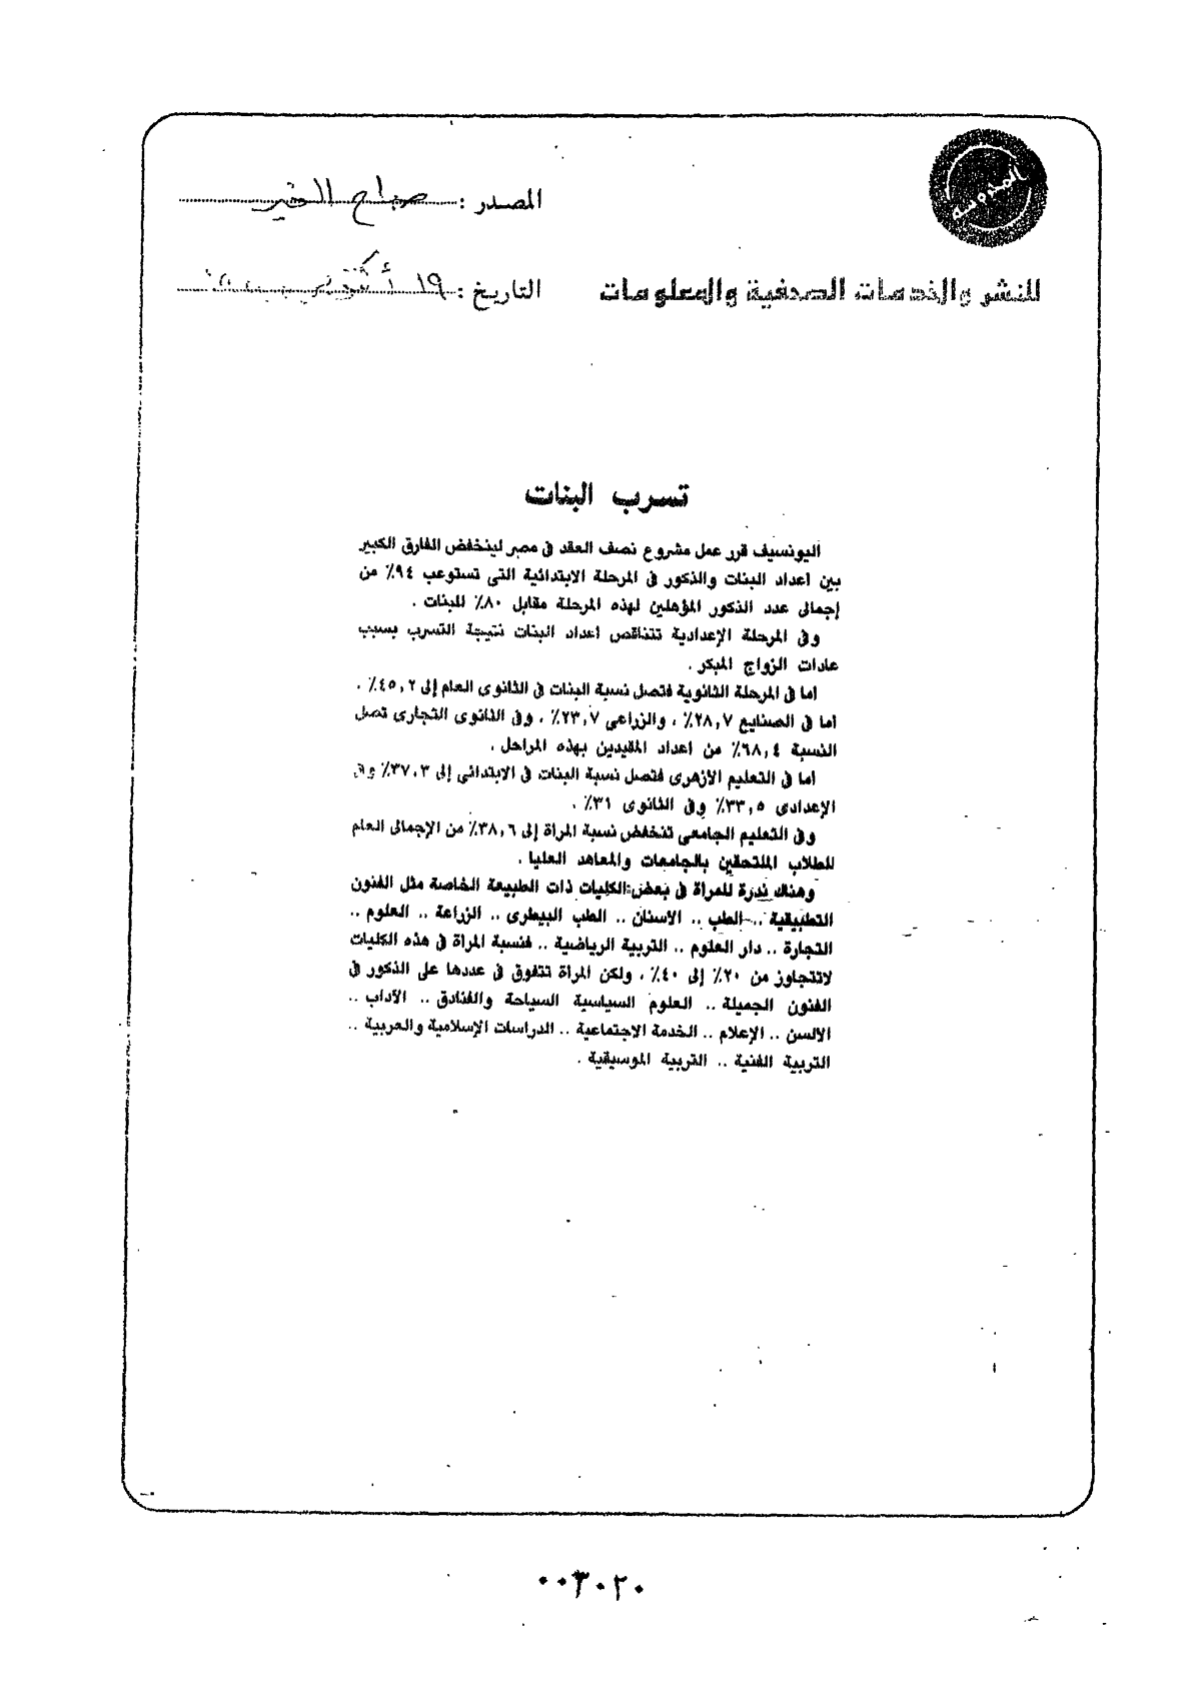 المصدر : صباح الخير
للنشر والخدمات الصحفية والمعلومات
التاريخ : ١٩ أكتوبر
تسرب البنات
اليونسيف قرر عمل مشروع نصف العقد فى مصر لينخفض الفارق الكبير
بين اعداد البنات والذكور فى المرحلة الابتدائية التى تستوعب ٩٤٪ من
إجمالى عدد الذكور المؤهلين لهذه المرحلة مقابل ٨٠٪ للبنات .
وفى المرحلة الإعدادية تتناقص اعداد البنات نتيجة التسرب بسبب
عادات الزواج المبكر .
اما فى المرحلة الثانوية فتصل نسبة البنات فى الثانوى العام إلى ٤٥,٢٪ .
اما فى الصنايع ٢٨,٧٪ ، والزراعى ٢٣,٧٪ ، وفى الثانوى التجارى تصل
النسبة ٦٨,٤٪ من اعداد المقيدين بهذه المراحل .
اما فى التعليم الأزهرى فتصل نسبة البنات فى الابتدائى إلى ٣٧,٣٪ وفى
الإعدادى ٣٣,٥٪ وفى الثانوى ٣١٪ .
وفى التعليم الجامعى تنخفض نسبة المراة إلى ٣٨,٦٪ من الإجمالى العام
للطلاب الملتحقين بالجامعات والمعاهد العليا .
وهناك ندرة للمراة فى بعض الكليات ذات الطبيعة الخاصة مثل الفنون
التطبيقية .. الطب .. الاسنان .. الطب البيطرى .. الزراعة .. العلوم ..
التجارة .. دار العلوم .. التربية الرياضية .. فنسبة المراة فى هذه الكليات
لاتتجاوز من ٢٠٪ إلى ٤٠٪ ، ولكن المراة تتفوق فى عددها على الذكور فى
الفنون الجميلة .. العلوم السياسية السياحة والفنادق .. الآداب ..
الالسن .. الإعلام .. الخدمة الاجتماعية .. الدراسات الإسلامية والعربية ..
التربية الفنية .. التربية الموسيقية .
٠٠٣٠٢٠